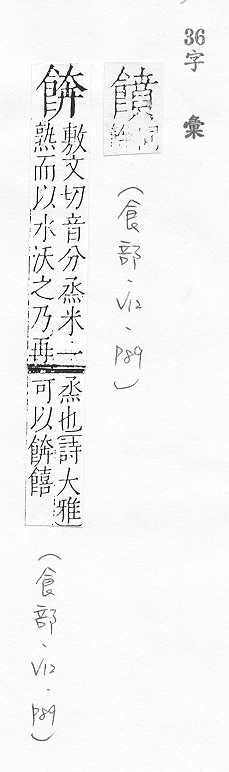 36字彙
饙
同
餴
(食部、V12、P89)
餴
敷文切音分烝米一
熟而以水沃之乃再
烝也詩大雅
可以餴饎
(食部、V12、P89)